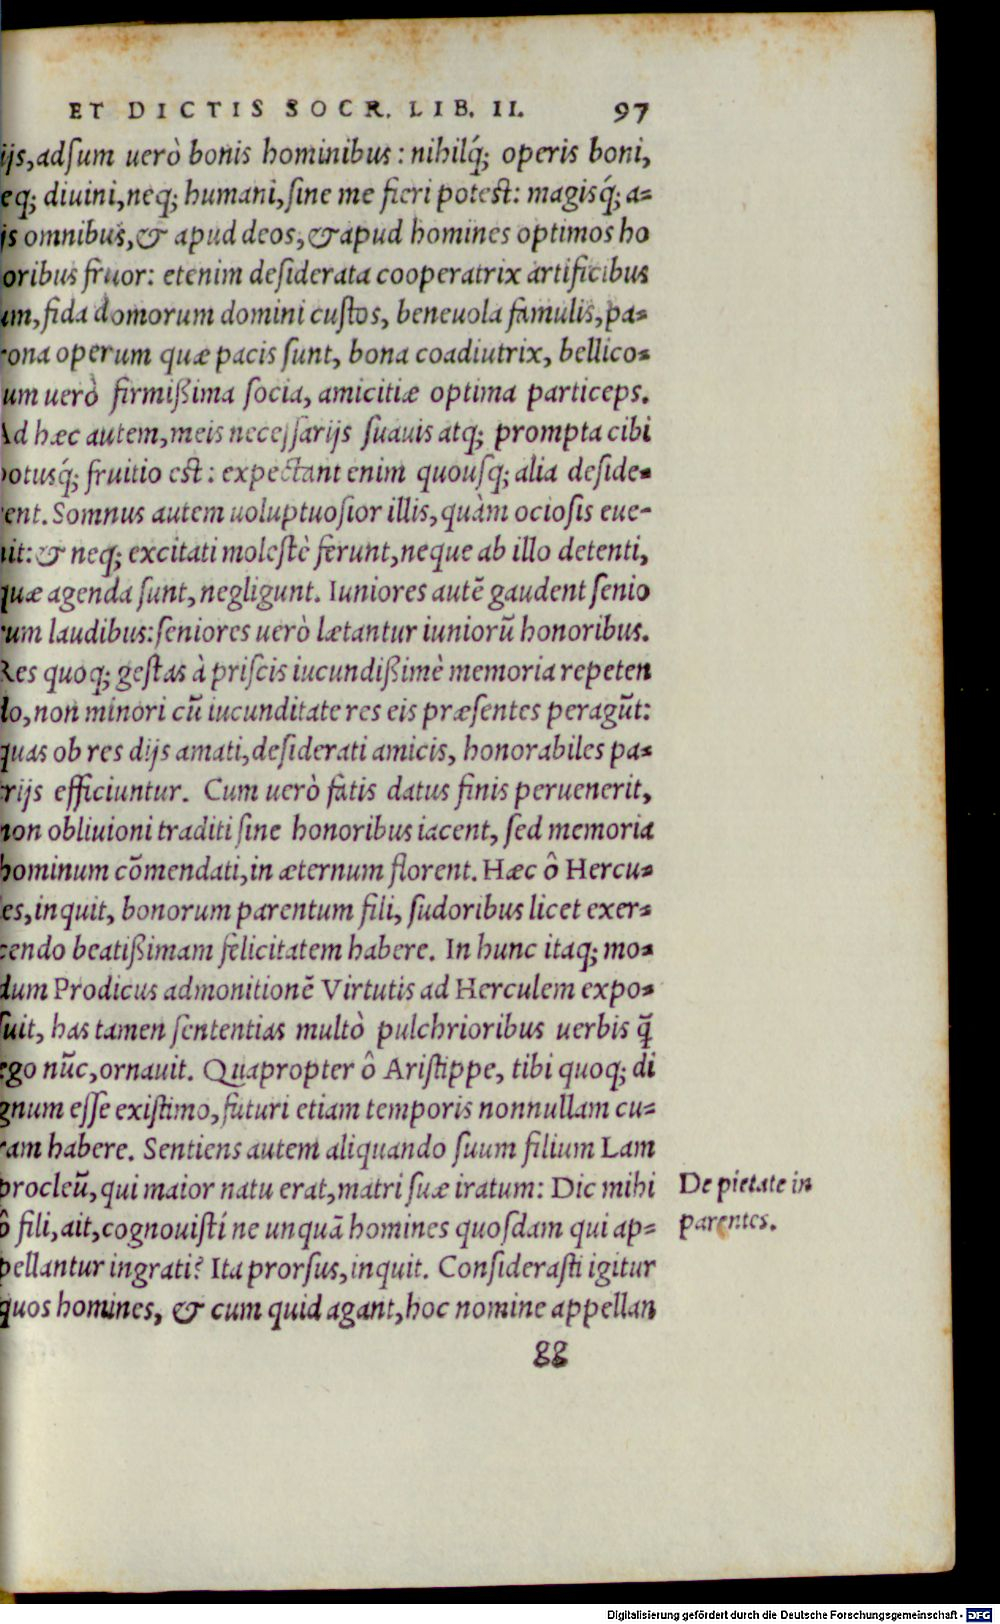 ET DICTIS SOCR. LIB. II. 97
ijs, adsum uerò bonis hominibus: nihilq́; operis boni,
eq; diuini, neq; humani, sine me fieri potest: magisq́; a-
js omnibus, & apud deos, & apud homines optimos ho
oribus fruor: etenim desiderata cooperatrix artificibus
um, fida domorum domini custos, beneuola famulis, pa-
rona operum quæ pacis sunt, bona coadiutrix, bellico-
um uerò firmißima socia, amicitiæ optima particeps.
Ad hæc autem, meis necessarijs suauis atq; prompta cibi
potusq́; fruitio est: expectant enim quousq; alia deside-
rent. Somnus autem uoluptuosior illis, quàm ociosis eue-
nit: & neq; excitati molestè ferunt, neque ab illo detenti,
quæ agenda sunt, negligunt. Iuniores autē gaudent senio
rum laudibus: seniores uerò lætantur iuniorū honoribus.
Res quoq; gestas à priscis iucundißimè memoria repeten
do, non minori cū iucunditate res eis præsentes peragūt:
quas ob res dijs amati, desiderati amicis, honorabiles pa-
trijs efficiuntur. Cum uerò fatis datus finis peruenerit,
non obliuioni traditi sine honoribus iacent, sed memoria
hominum cōmendati, in æternum florent. Hæc ô Hercu-
les, inquit, bonorum parentum fili, sudoribus licet exer-
cendo beatißimam felicitatem habere. In hunc itaq; mo-
dum Prodicus admonitionē Virtutis ad Herculem expo-
suit, has tamen sententias multò pulchrioribus uerbis q̄
ego nūc, ornauit. Quapropter ô Aristippe, tibi quoq; di
gnum esse existimo, futuri etiam temporis nonnullam cu-
ram habere. Sentiens autem aliquando suum filium Lam
procleū, qui maior natu erat, matri suæ iratum: Dic mihi
ô fili, ait, cognouistí ne unquā homines quosdam qui ap-
pellantur ingrati? Ita prorsus, inquit. Considerasti igitur
quos homines, & cum quid agant, hoc nomine appellan
De pietate in
parentes.
gg
Digitalisierung gefördert durch die Deutsche Forschungsgemeinschaft - DFG